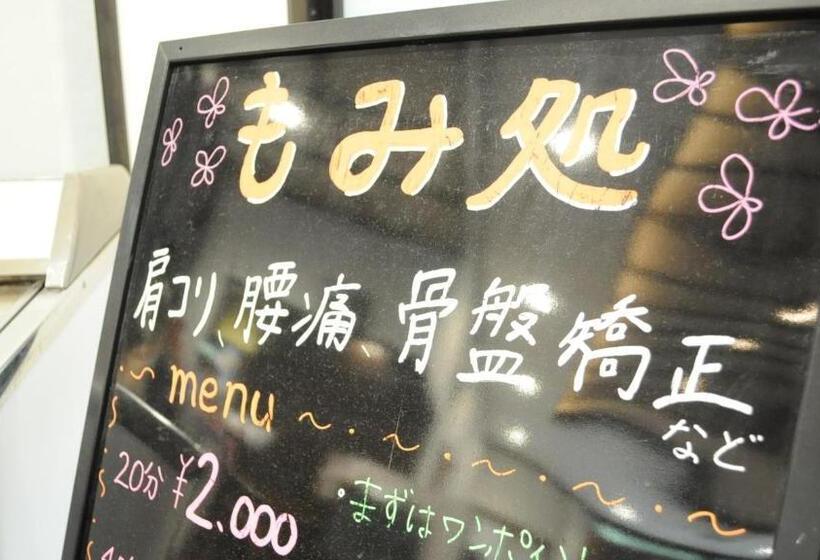 もみ処
肩コリ、腰痛、骨盤矯正
など
menu
20分 ¥2,000
まずはワンポイント